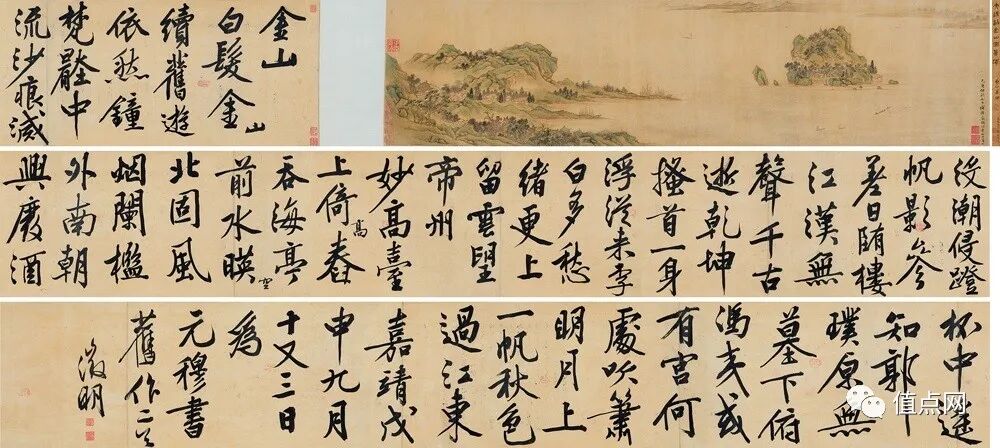 金山
白髮金山
續舊遊
依然鐘
梵壑中
流沙痕減
沒潮侵蹬
帆影參
差日隨樓
江漢無
聲千古
逝乾坤
搔首一身
浮從來李
白多愁
緒更上
留雲望
帝州
妙高臺
上倚高舂
吞海亭
前水暎空
北固風
烟闌檻
外南朝
興廢酒
杯中遠
知郭
璞原無
墓下俯
馮夷或
有宮何
處吹簫
明月上
一帆秋色
過江東
嘉靖戊
申九月
十又三日
為
元穆書
舊作二首
徵明
值点网